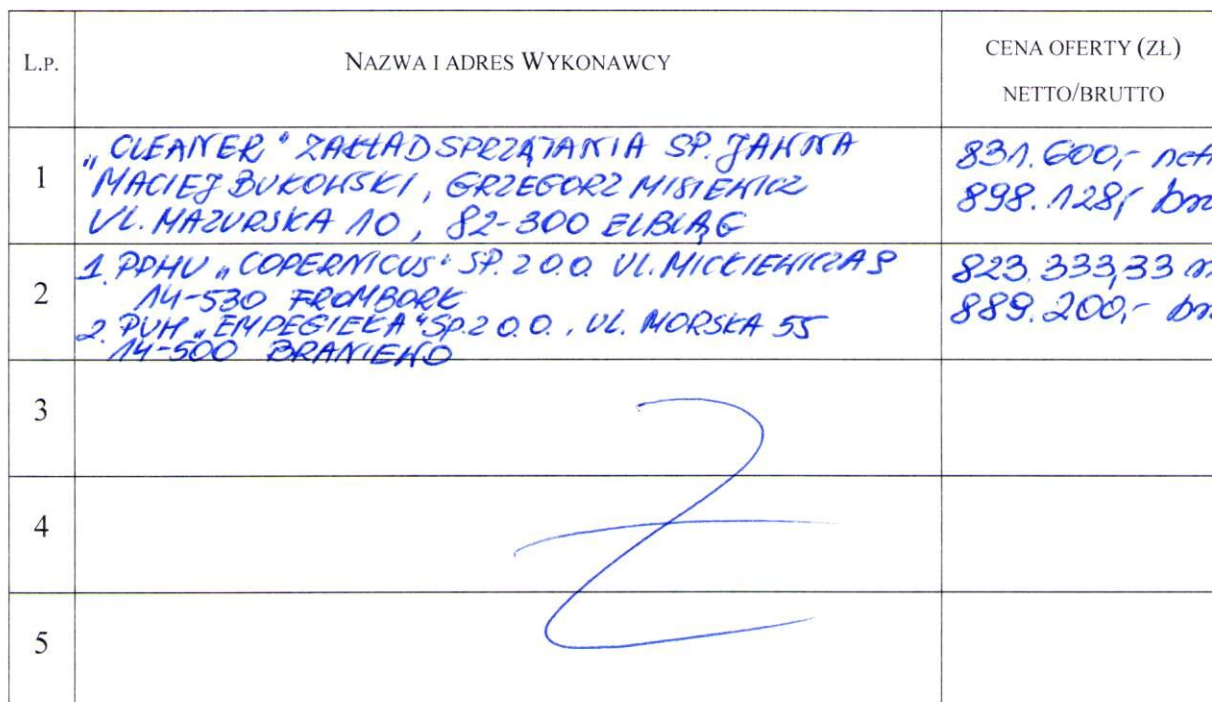 L.P.
NAZWA I ADRES WYKONAWCY
CENA OFERTY (ZŁ)
NETTO/BRUTTO
1
„CLEANER" ZAKŁAD SPRZĄTANIA SP. JAWNA
MACIEJ BUKOWSKI, GRZEGORZ MISIEWICZ
UL. MAZURSKA 10, 82-300 ELBLĄG
831.600,- nett
898.128,- bru
2
1. PPHU „COPERNICUS" SP. Z O.O. UL. MICKIEWICZA 9
14-530 FROMBORK
2. PUH „EMPEGIEKA" SP. Z O.O., UL. MORSKA 55
14-500 BRANIEWO
823.333,33 n
889.200,- bru
3
4
5